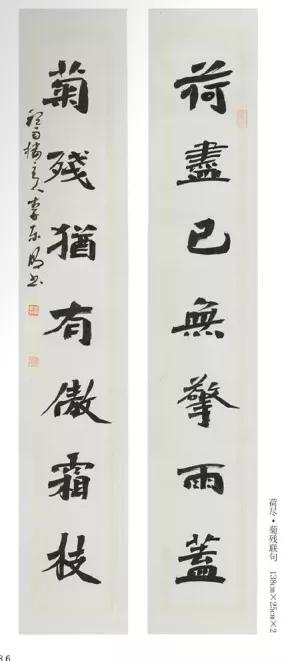 荷盡已無擎雨蓋
菊殘猶有傲霜枝
荷尽·菊残联句 138cm×25cm×2
86